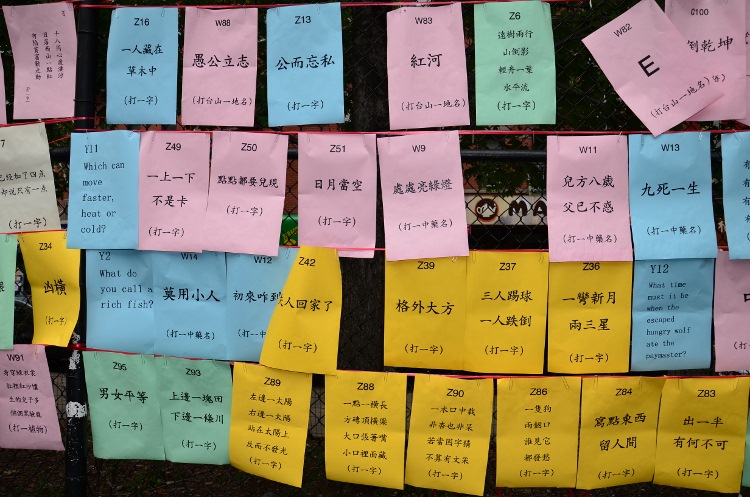 Z16
一人藏在
草木中
(打一字)
W88
愚公立志
(打台山一地名)
Z13
公而忘私
(打一字)
W83
紅河
(打台山一地名)
Z6
遠樹兩行
山倒影
輕舟一葉
水平流
(打一字)
W82
E
(打台山一地名)
C100
乾坤
Y11
Which can
move
faster,
heat or
cold?
Z49
一上一下
不是卡
(打一字)
Z50
點點都要兒現
(打一字)
Z51
日月當空
(打一字)
W9
處處亮綠燈
(打一中藥名)
W11
兒方八歲
父已不惑
(打一中藥名)
W13
九死一生
(打一中藥名)
已經如了四点
却说只有一点
(打一字)
Z34
凶橫
(打一字)
Y2
What do
you call a
rich fish?
W14
莫用小人
(打一中藥名)
W12
初來咋到
(打一中藥名)
Z42
人回家了
(打一字)
Z39
格外大方
(打一字)
Z37
三人踢球
一人跌倒
(打一字)
Z36
一彎新月
兩三星
(打一字)
Y12
What time
must it be
when the
escaped
hungry wolf
ate the
paymaster?
W91
(打一植物)
Z95
男女平等
(打一字)
Z93
上邊一塊田
下邊一條川
(打一字)
Z89
左邊一太陽
右邊一太陽
站在太陽上
反而不發光
(打一字)
Z88
一點一橫長
方磚頂橫梁
大口張著嘴
小口裡面藏
(打一字)
Z90
一木口中栽
非杏也非呆
若當困字猜
不算有文采
(打一字)
Z86
一隻狗
兩個口
誰見它
都發愁
(打一字)
Z84
寫點東西
留人間
(打一字)
Z83
出一半
有何不可
(打一字)